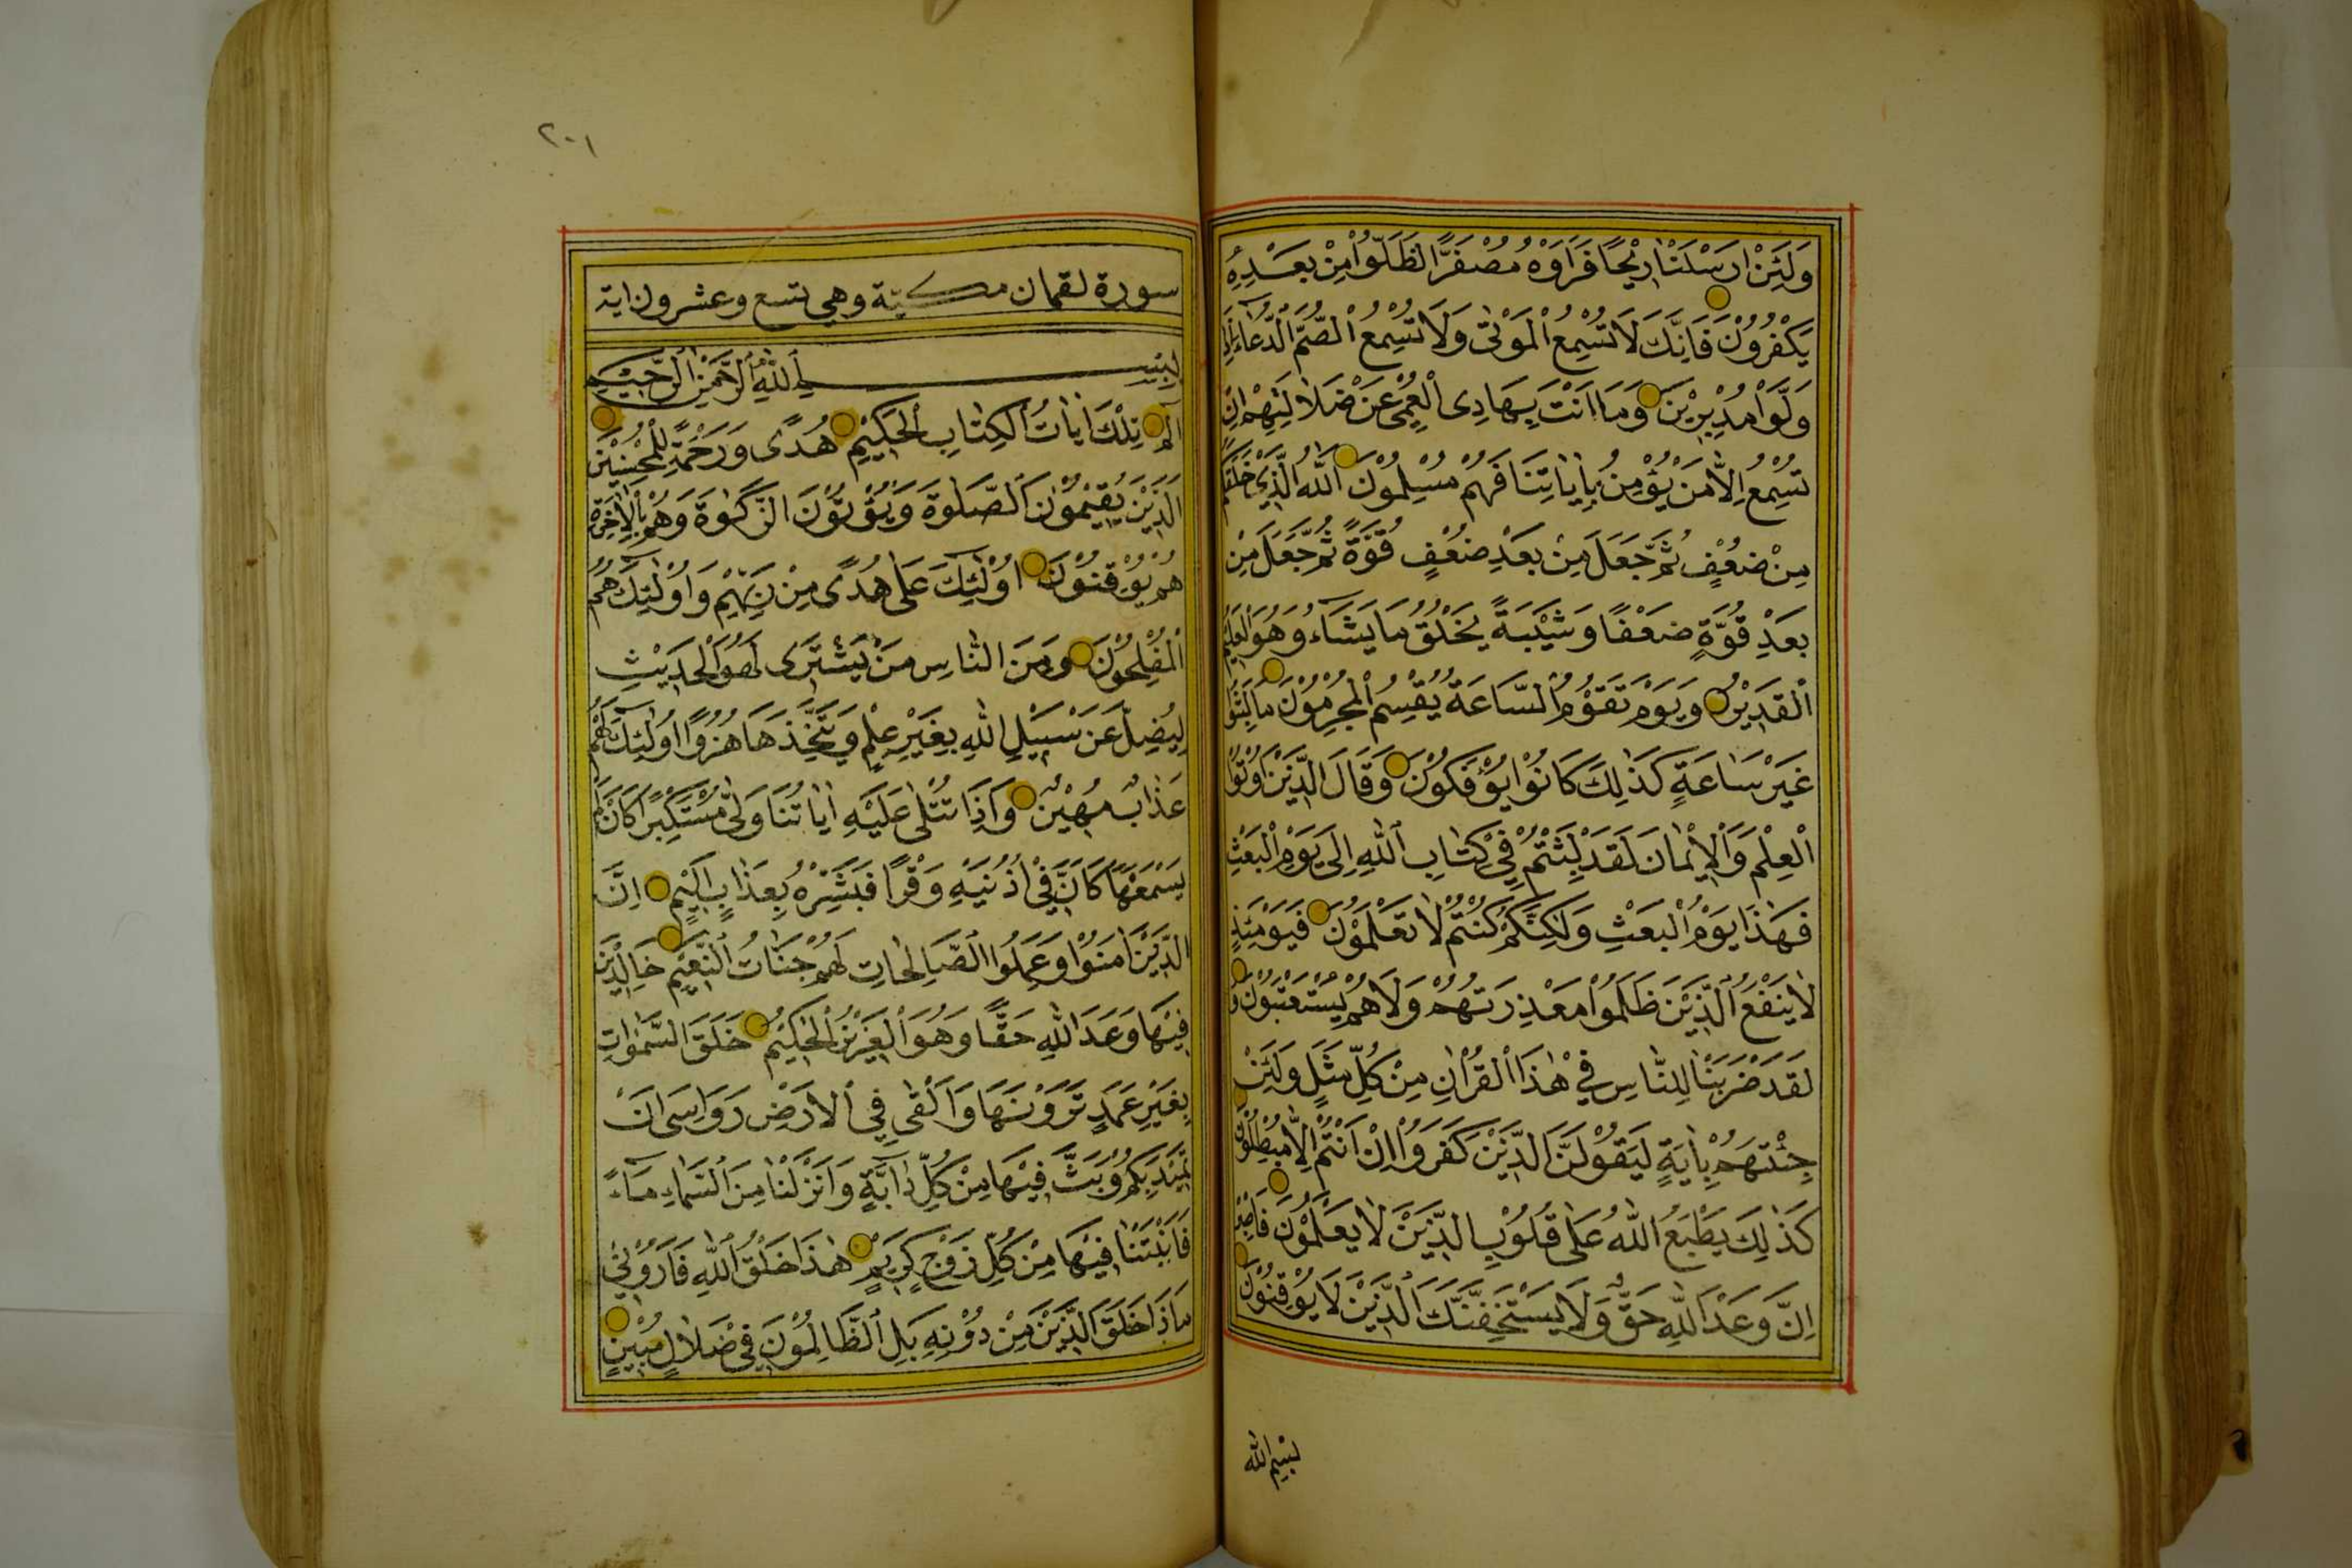 وَلَئِنْ اَرْسَلْنَا رِيْحًا فَرَاَوْهُ مُصْفَرًّا لَظَلُّوْا مِنْ بَعْدِهٖ
يَكْفُرُوْنَ فَاِنَّكَ لَا تُسْمِعُ الْمَوْتٰى وَلَا تُسْمِعُ الصُّمَّ الدُّعَاءَ اِذَا
وَلَّوْا مُدْبِرِيْنَ وَمَا اَنْتَ بِهَادِى الْعُمْىِ عَنْ ضَلَالَتِهِمْ اِنْ
تُسْمِعُ اِلَّا مَنْ يُؤْمِنُ بِاٰيَاتِنَا فَهُمْ مُسْلِمُوْنَ اَللّٰهُ الَّذِيْ خَلَقَكُمْ
مِنْ ضُعْفٍ ثُمَّ جَعَلَ مِنْ بَعْدِ ضُعْفٍ قُوَّةً ثُمَّ جَعَلَ مِنْ
بَعْدِ قُوَّةٍ ضَعْفًا وَشَيْبَةً يَخْلُقُ مَا يَشَاءُ وَهُوَ الْعَلِيْمُ
الْقَدِيْرُ وَيَوْمَ تَقُوْمُ السَّاعَةُ يُقْسِمُ الْمُجْرِمُوْنَ مَا لَبِثُوْا
غَيْرَ سَاعَةٍ كَذٰلِكَ كَانُوْا يُؤْفَكُوْنَ وَقَالَ الَّذِيْنَ اُوْتُوْا
الْعِلْمَ وَالْاِيْمَانَ لَقَدْ لَبِثْتُمْ فِيْ كِتَابِ اللّٰهِ اِلٰى يَوْمِ الْبَعْثِ
فَهٰذَا يَوْمُ الْبَعْثِ وَلٰكِنَّكُمْ كُنْتُمْ لَا تَعْلَمُوْنَ فَيَوْمَئِذٍ
لَا يَنْفَعُ الَّذِيْنَ ظَلَمُوْا مَعْذِرَتُهُمْ وَلَا هُمْ يُسْتَعْتَبُوْنَ وَ
لَقَدْ ضَرَبْنَا لِلنَّاسِ فِيْ هٰذَا الْقُرْاٰنِ مِنْ كُلِّ مَثَلٍ وَلَئِنْ
جِئْتَهُمْ بِاٰيَةٍ لَيَقُوْلَنَّ الَّذِيْنَ كَفَرُوْا اِنْ اَنْتُمْ اِلَّا مُبْطِلُوْنَ
كَذٰلِكَ يَطْبَعُ اللّٰهُ عَلٰى قُلُوْبِ الَّذِيْنَ لَا يَعْلَمُوْنَ فَاصْبِرْ
اِنَّ وَعْدَ اللّٰهِ حَقٌّ وَلَا يَسْتَخِفَّنَّكَ الَّذِيْنَ لَا يُوْقِنُوْنَ
بسم الله
٢٠١
سورة لقمان مكية وهي تسع وعشرون اية
بِسْمِ اللّٰهِ الرَّحْمٰنِ الرَّحِيْمِ
الٓمٓ تِلْكَ اٰيَاتُ الْكِتَابِ الْحَكِيْمِ هُدًى وَرَحْمَةً لِلْمُحْسِنِيْنَ
اَلَّذِيْنَ يُقِيْمُوْنَ الصَّلٰوةَ وَيُؤْتُوْنَ الزَّكٰوةَ وَهُمْ بِالْاٰخِرَةِ
هُمْ يُوْقِنُوْنَ اُولٰئِكَ عَلٰى هُدًى مِنْ رَبِّهِمْ وَاُولٰئِكَ هُمُ
الْمُفْلِحُوْنَ وَمِنَ النَّاسِ مَنْ يَشْتَرِى لَهْوَ الْحَدِيْثِ
لِيُضِلَّ عَنْ سَبِيْلِ اللّٰهِ بِغَيْرِ عِلْمٍ وَيَتَّخِذَهَا هُزُوًا اُولٰئِكَ لَهُمْ
عَذَابٌ مُهِيْنٌ وَاِذَا تُتْلٰى عَلَيْهِ اٰيَاتُنَا وَلّٰى مُسْتَكْبِرًا كَاَنْ لَمْ
يَسْمَعْهَا كَاَنَّ فِيْ اُذُنَيْهِ وَقْرًا فَبَشِّرْهُ بِعَذَابٍ اَلِيْمٍ اِنَّ
الَّذِيْنَ اٰمَنُوْا وَعَمِلُوا الصَّالِحَاتِ لَهُمْ جَنَّاتُ النَّعِيْمِ خَالِدِيْنَ
فِيْهَا وَعْدَ اللّٰهِ حَقًّا وَهُوَ الْعَزِيْزُ الْحَكِيْمُ خَلَقَ السَّمٰوَاتِ
بِغَيْرِ عَمَدٍ تَرَوْنَهَا وَاَلْقٰى فِي الْاَرْضِ رَوَاسِىَ اَنْ
تَمِيْدَ بِكُمْ وَبَثَّ فِيْهَا مِنْ كُلِّ دَابَّةٍ وَاَنْزَلْنَا مِنَ السَّمَاءِ مَاءً
فَاَنْبَتْنَا فِيْهَا مِنْ كُلِّ زَوْجٍ كَرِيْمٍ هٰذَا خَلْقُ اللّٰهِ فَاَرُوْنِيْ
مَاذَا خَلَقَ الَّذِيْنَ مِنْ دُوْنِهِ بَلِ الظَّالِمُوْنَ فِيْ ضَلَالٍ مُبِيْنٍ